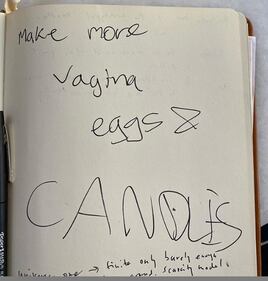 Make more
vagina
eggs &
CANDLES
→ finite only barely
scarcity models